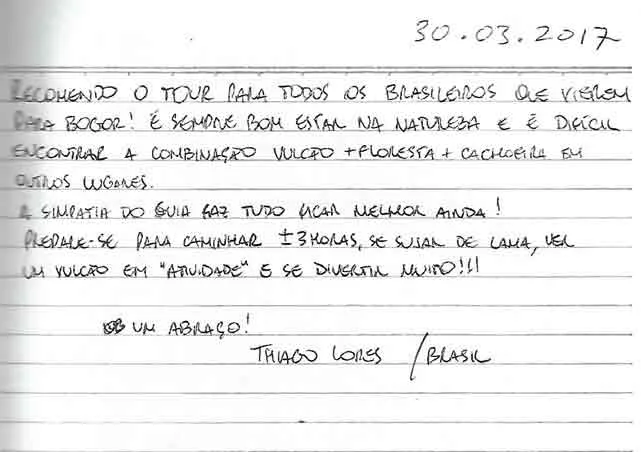 30.03.2017
RECOMENDO O TOUR PARA TODOS OS BRASILEIROS QUE VIEREM
PARA BOGOR! É SEMPRE BOM ESTAR NA NATUREZA E É DIFÍCIL
ENCONTRAR A COMBINAÇÃO VULCÃO + FLORESTA + CACHOEIRA EM
OUTROS LUGARES.
A SIMPATIA DO GUIA FAZ TUDO FICAR MELHOR AINDA!
PREPARE-SE PARA CAMINHAR ±3 HORAS, SE SUJAR DE LAMA, VER
UM VULCÃO EM "ATIVIDADE" E SE DIVERTIR MUITO!!!
UM ABRAÇO!
THIAGO LOPES / BRASIL